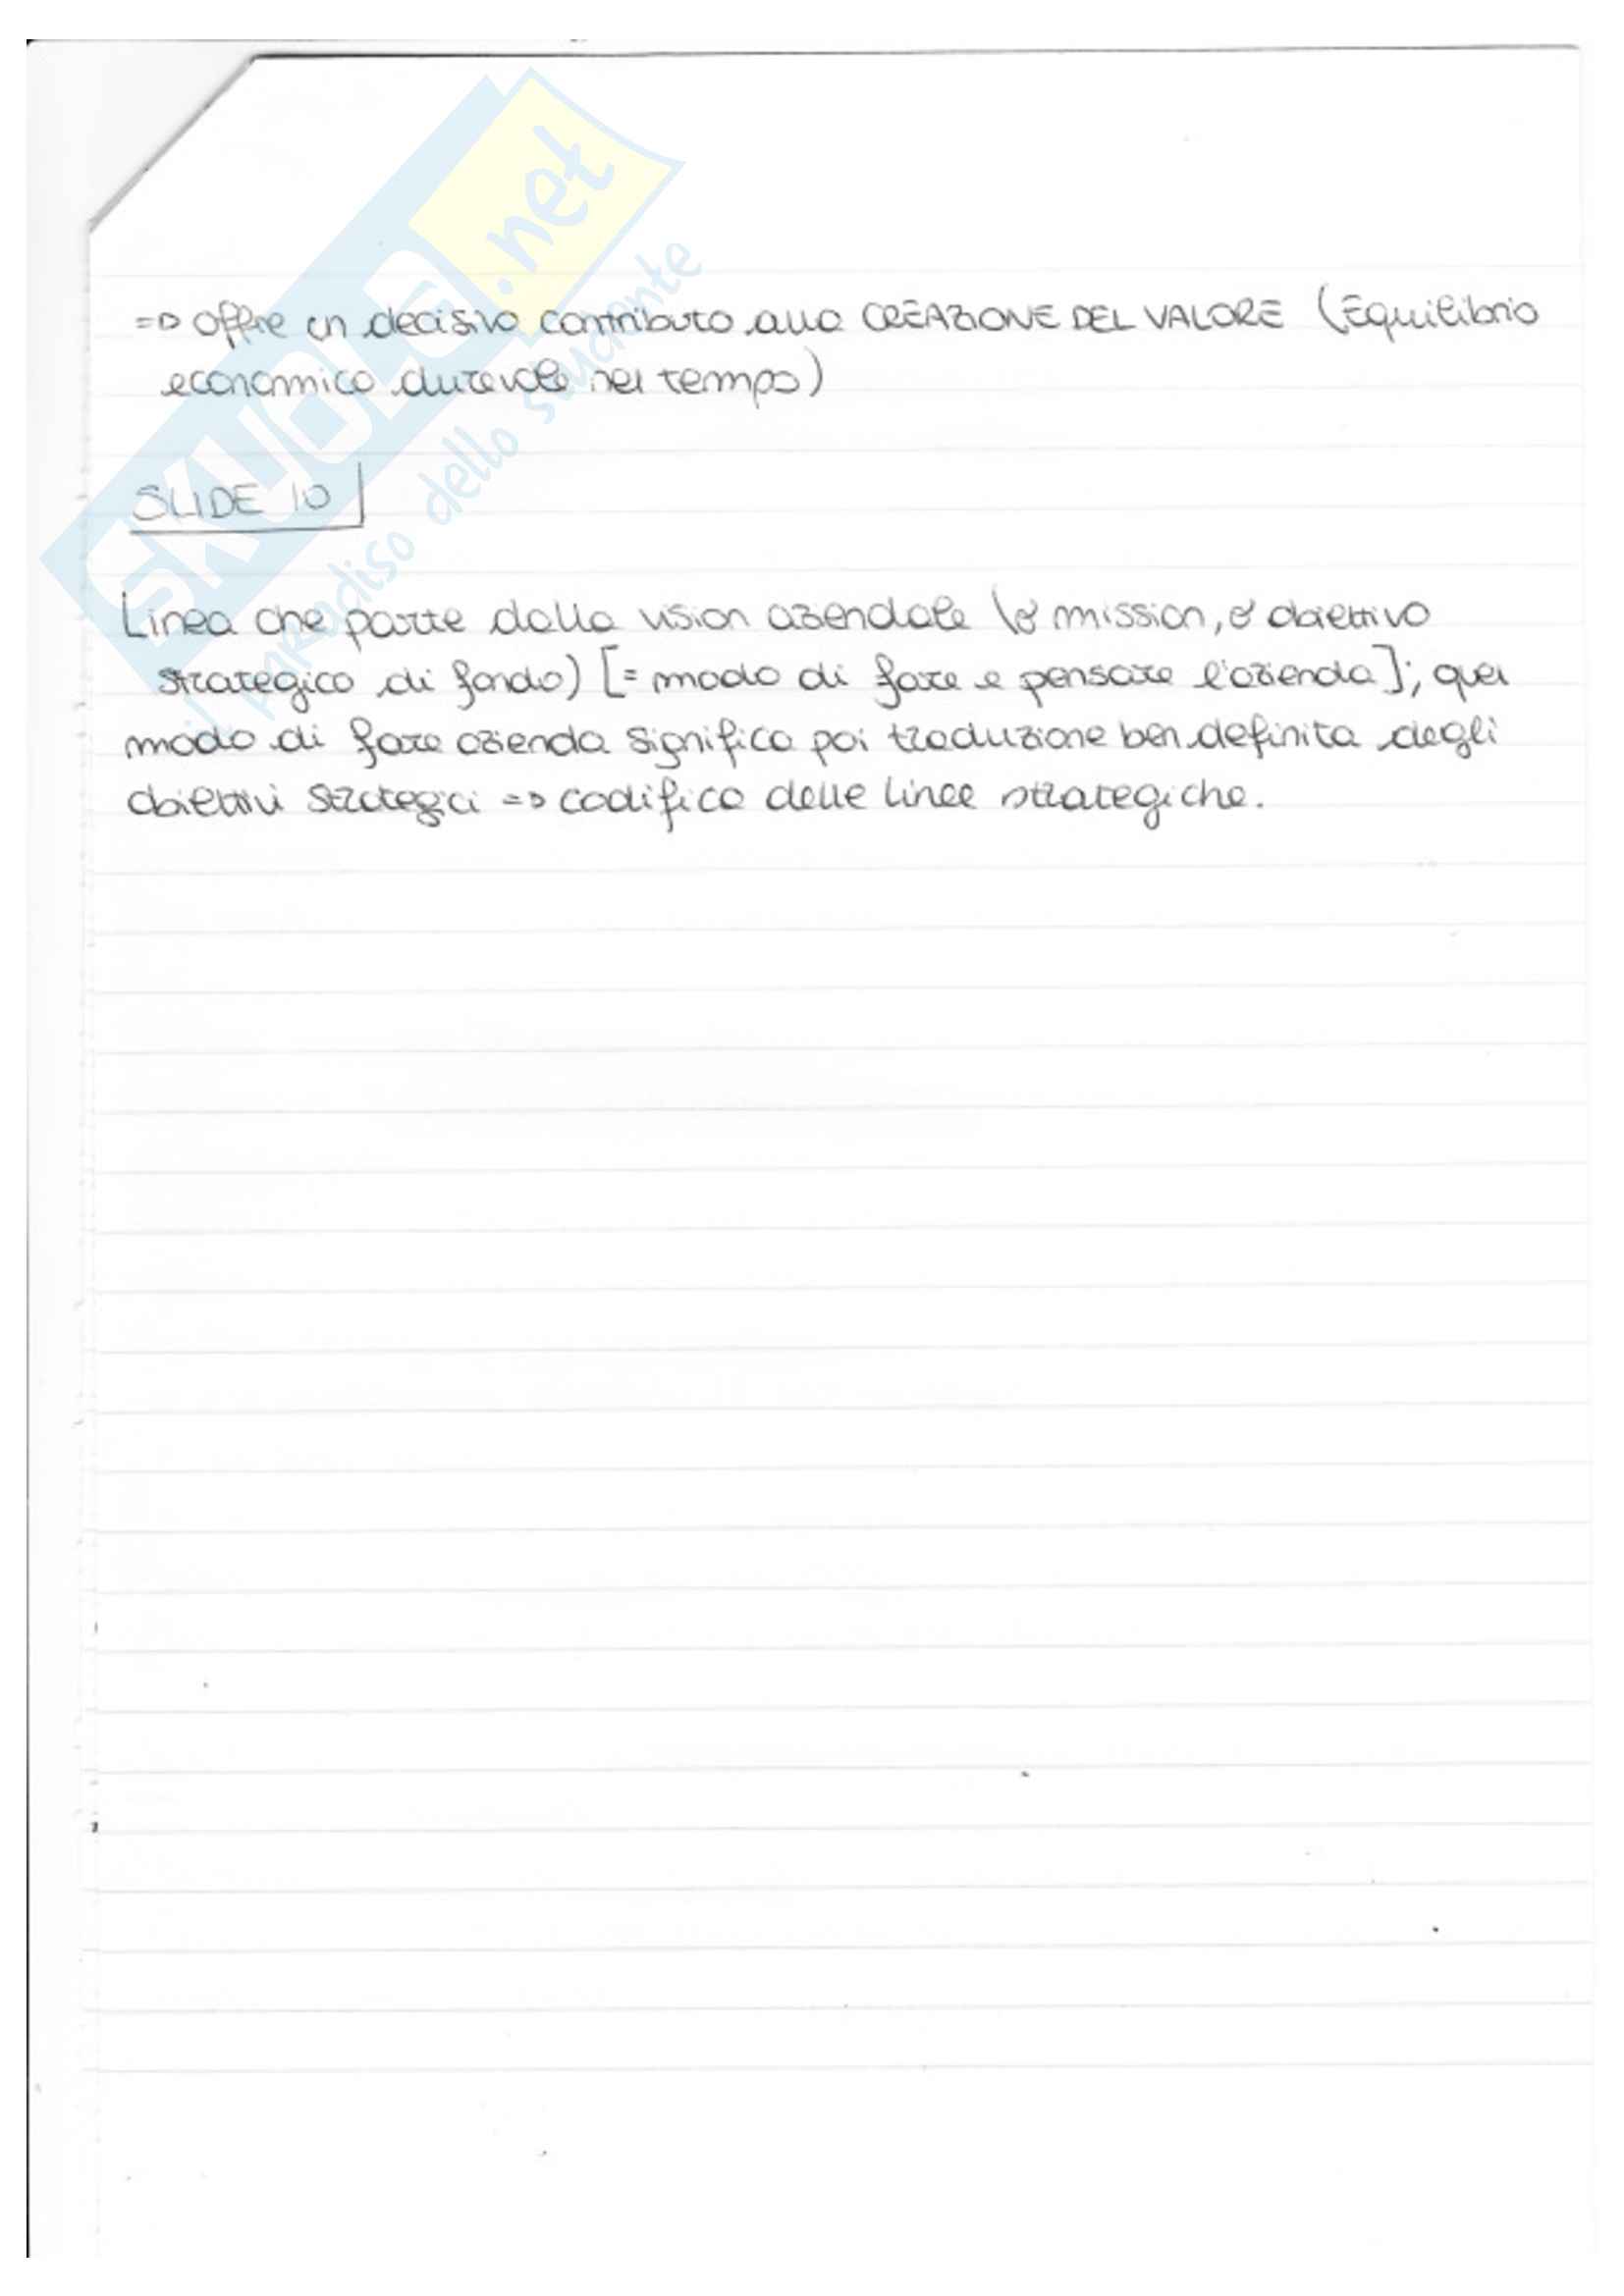 SKUOLA.net
il paradiso dello studente
=> offre un decisivo contributo alla CREAZIONE DEL VALORE (Equilibrio
economico durevole nel tempo)
SLIDE 10
Linea che parte dalla vision aziendale (o mission, o obiettivo
strategico di fondo) [= modo di fare e pensare l'azienda]; quel
modo di fare azienda significa poi traduzione ben definita degli
obiettivi strategici => codifica delle linee strategiche.